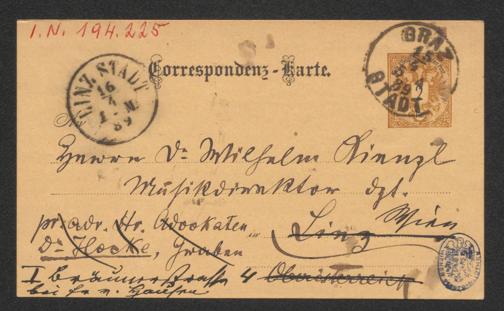 I.N. 194.225
GRAZ
STADT
LINZ STADT
16
89
Correspondenz-Karte.
Herrn Dr Wilhelm Kienzl
Musikdirektor dzt.
pr. adr. Hr. Advokaten Linz Wien
Dr Hocke, Graben
I Bräunerstrasse 4 Oberösterreich
bei Fr. v. Hausen